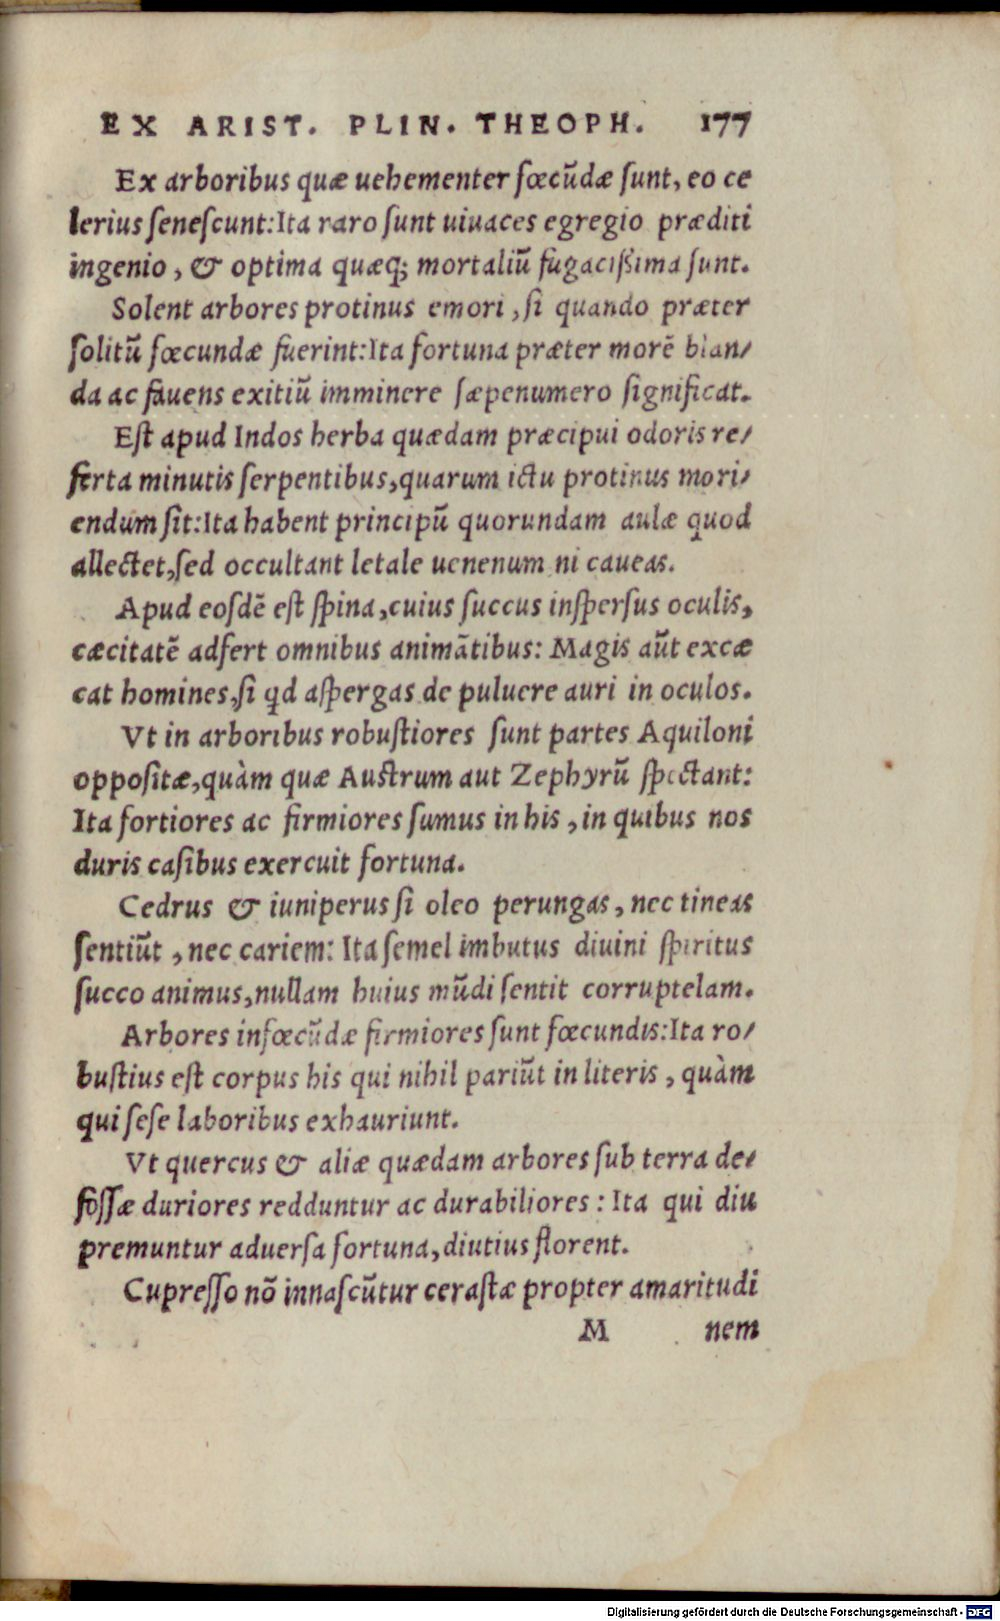 EX ARIST. PLIN. THEOPH. 177
Ex arboribus quæ uehementer fœcūdæ ſunt, eo ce
lerius ſeneſcunt: Ita raro ſunt uiuaces egregio præditi
ingenio, & optima quæq; mortaliū fugacißima ſunt.
Solent arbores protinus emori, ſi quando præter
ſolitū fœcundæ fuerint: Ita fortuna præter morē blan⸗
da ac fauens exitiū imminere ſæpenumero ſignificat.
Eſt apud Indos herba quædam præcipui odoris re⸗
ferta minutis ſerpentibus, quarum ictu protinus mori⸗
endum ſit: Ita habent principū quorundam aulæ quod
allectet, ſed occultant letale uenenum ni caueas.
Apud eoſdē eſt ſpina, cuius ſuccus inſperſus oculis,
cæcitatē adfert omnibus animātibus: Magis aūt excæ
cat homines, ſi qd aſpergas de puluere auri in oculos.
Vt in arboribus robuſtiores ſunt partes Aquiloni
oppoſitæ, quàm quæ Auſtrum aut Zephyrū ſpectant:
Ita fortiores ac firmiores ſumus in his, in quibus nos
duris caſibus exercuit fortuna.
Cedrus & iuniperus ſi oleo perungas, nec tineas
ſentiūt, nec cariem: Ita ſemel imbutus diuini ſpiritus
ſucco animus, nullam huius mūdi ſentit corruptelam.
Arbores infœcūdæ firmiores ſunt fœcundis: Ita ro⸗
buſtius eſt corpus his qui nihil pariūt in literis, quàm
qui ſeſe laboribus exhauriunt.
Vt quercus & aliæ quædam arbores ſub terra de⸗
foſſæ duriores redduntur ac durabiliores: Ita qui diu
premuntur aduerſa fortuna, diutius florent.
Cupreſſo nō innaſcūtur ceraſtæ propter amaritudi
M nem
Digitalisierung gefördert durch die Deutsche Forschungsgemeinschaft - DFG